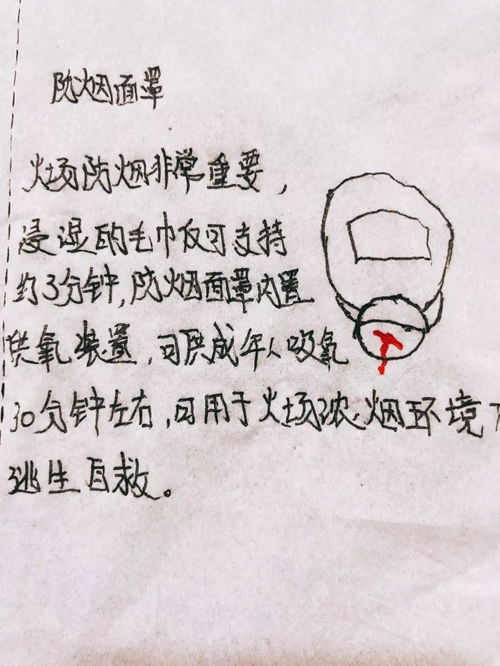 防烟面罩
火场防烟非常重要，
浸湿的毛巾仅可支持
约3分钟，防烟面罩内置
供氧装置，可供成年人吸氧
30分钟左右，可用于火场浓烟环境下
逃生自救。